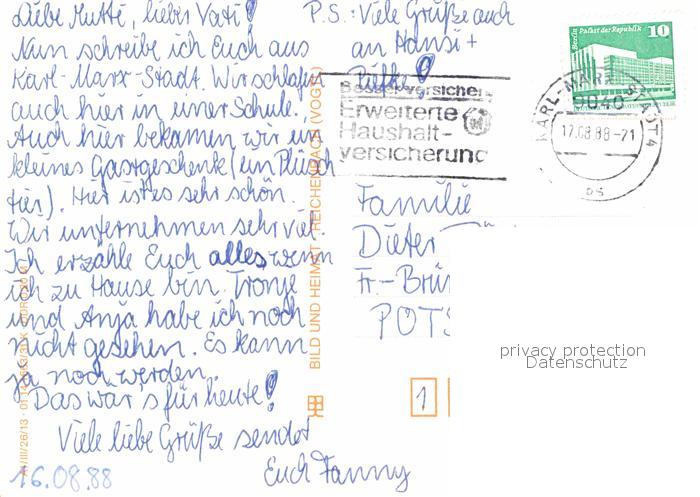 Liebe Mutti, lieber Vati!
Nun schreibe ich Euch aus
Karl-Marx-Stadt. Wir schlafen
auch hier in einer Schule.
Auch hier bekamen wir ein
kleines Gastgeschenk (ein Plüsch
tier). Hier ist es sehr schön.
Wir unternehmen sehr viel.
Ich erzähle Euch alles, wenn
ich zu Hause bin. Tronje
und Anja habe ich noch
nicht gesehen. Es kann
ja noch werden.
Das war's für heute!
Viele liebe Grüße sendet
Euch Fanny
16.08.88
P.S.: Viele Grüße auch
an Hansi +
BILD UND HEIMAT REICHENBACH (VOGTL)
Besser versichert
Erweiterte
Haushalt-
versicherung
Berlin Palast der Republik
10
KARL-MARX-STADT 4
9040
17.08.88-21
Familie
Dieter
Fr.-
POTS
1
privacy protection
Datenschutz